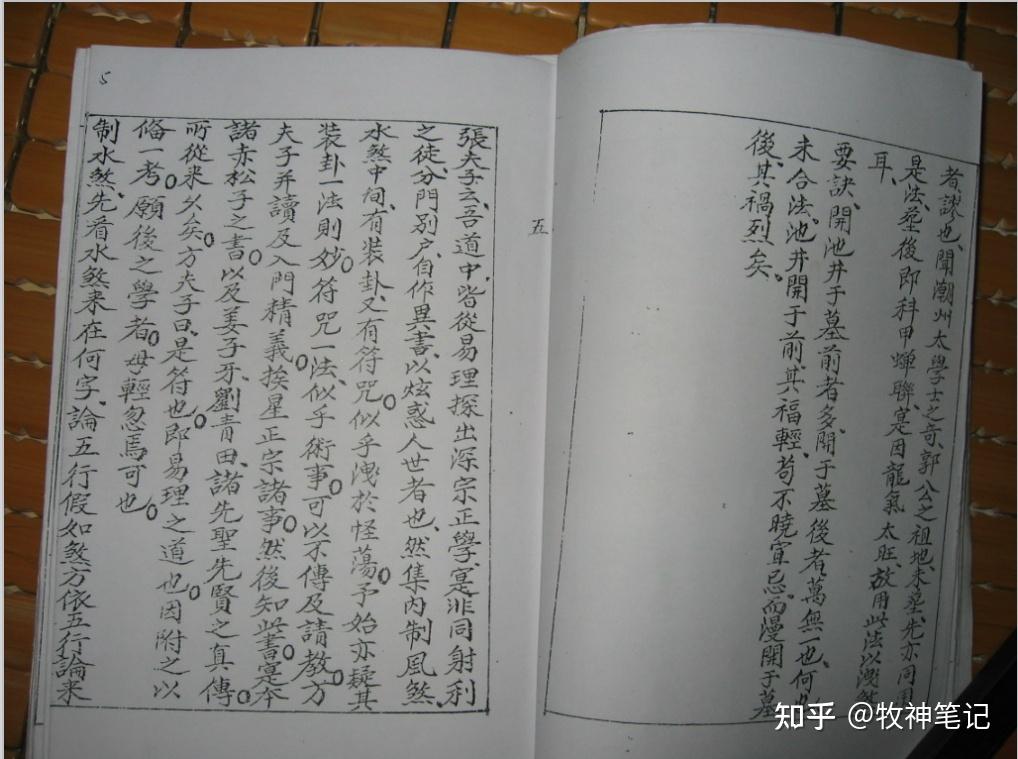 者、謬也、聞潮州太學士之竒、郭公之祖地、未塟、先亦同用
是法、塟後即科甲蟬聯、寔因龍氣太旺、故用此法以洩煞
耳、
要訣、開池井于墓前者多、開于墓後者萬無一也、何
未合法、池井開于前、其福輕、苟不曉宜忌、而慢開于墓
後、其禍烈矣。
五
5
張夫子云、吾道中、皆從易理探出深宗正學、寔非同射利
之徒、分門別户、自作異書、以炫惑人世者也、然集内制風煞、
水煞中间、有装卦、又有符咒。似乎洩於怪蕩。予始亦疑其
装卦一法則妙。符咒一法、似乎術事。可以不傳、及請教方
夫子并讀及入門精義。挨星正宗諸事。然後知此書。寔本
諸赤松子之書。以及姜子牙、劉青田、諸先聖先賢之真傳。
所從来久矣。方夫子曰、是符也。即易理之道也。因附之以
俻一考。願後之學者。毋輕忽焉可也。
制水煞、先看水煞来在何字、論五行假如煞方依五行論来
知乎 @牧神笔记